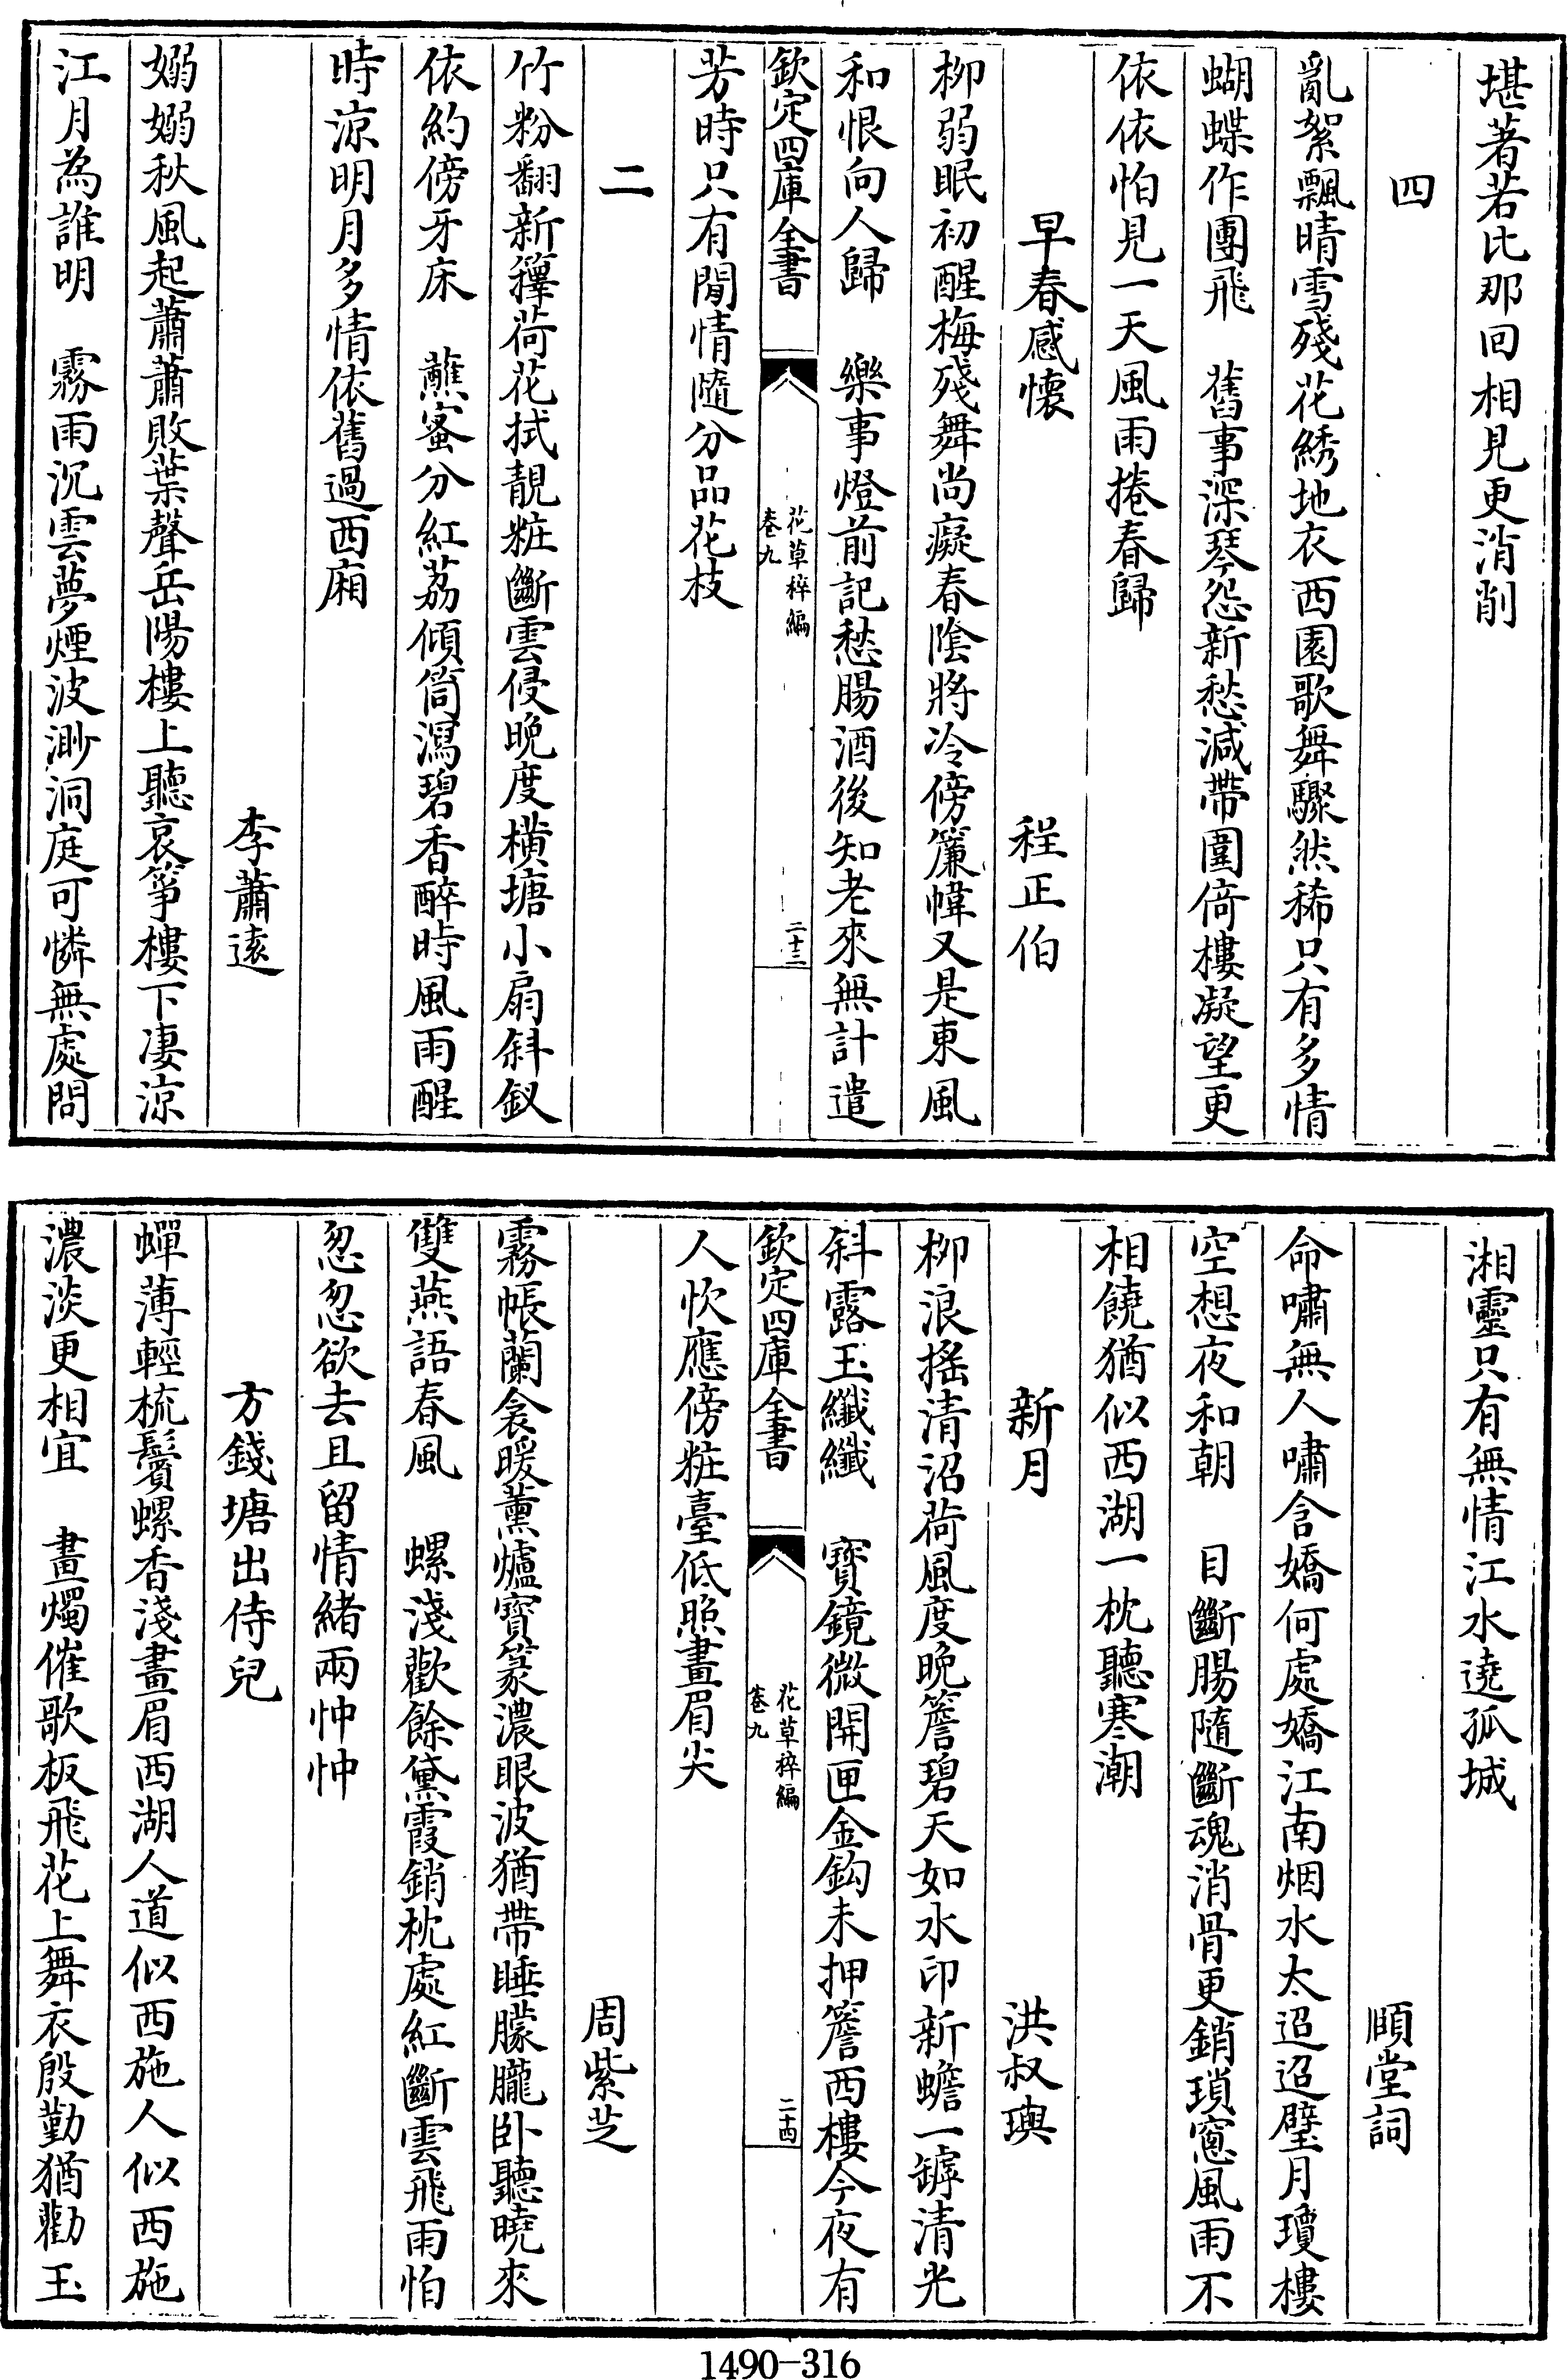 堪著若比那回相見更消削
四
亂絮飄晴雪殘花綉地衣西園歌舞驟然稀只有多情
蝴蝶作團飛　舊事深琴怨新愁減帶圍倚樓凝望更
依依怕見一天風雨捲春歸
早春感懷　程正伯
柳弱眠初醒梅殘舞尚癡春陰將冷傍簾幃又是東風
和恨向人歸　樂事燈前記愁腸酒後知老來無計遣
欽定四庫全書　花草稡編　卷九　二十三
芳時只有閒情隨分品花枝
二
竹粉翻新籜荷花拭靚粧斷雲侵晚度橫塘小扇斜釵
依約傍牙床　蘸蜜分紅荔傾筒瀉碧香醉時風雨醒
時涼明月多情依舊過西廂
李蕭遠
嫋嫋秋風起蕭蕭敗葉聲岳陽樓上聽哀箏樓下凄涼
江月為誰明　霧雨沉雲夢煙波渺洞庭可憐無處問
湘靈只有無情江水遶孤城
頤堂詞
命嘯無人嘯含嬌何處嬌江南烟水太迢迢璧月瓊樓
空想夜和朝　目斷腸隨斷魂消骨更銷瑣窻風雨不
相饒猶似西湖一枕聽寒潮
新月　洪叔璵
柳浪搖清沼荷風度晚簷碧天如水印新蟾一罅清光
斜露玉纖纖　寳鏡微開匣金鈎未押簷西樓今夜有
欽定四庫全書　花草稡編　卷九　二十四
人忺應傍粧臺低照畫眉尖
周紫芝
霧帳蘭衾暖薰爐寳篆濃眼波猶帶睡朦朧卧聽曉來
雙燕語春風　螺淺歡餘黛霞銷枕處紅斷雲飛雨怕
怱怱欲去且留情緒兩忡忡
方錢塘出侍兒
蟬薄輕梳鬢螺香淺畫眉西湖人道似西施人似西施
濃淡更相宜　畫燭催歌板飛花上舞衣殷勤猶勸玉
1490-316